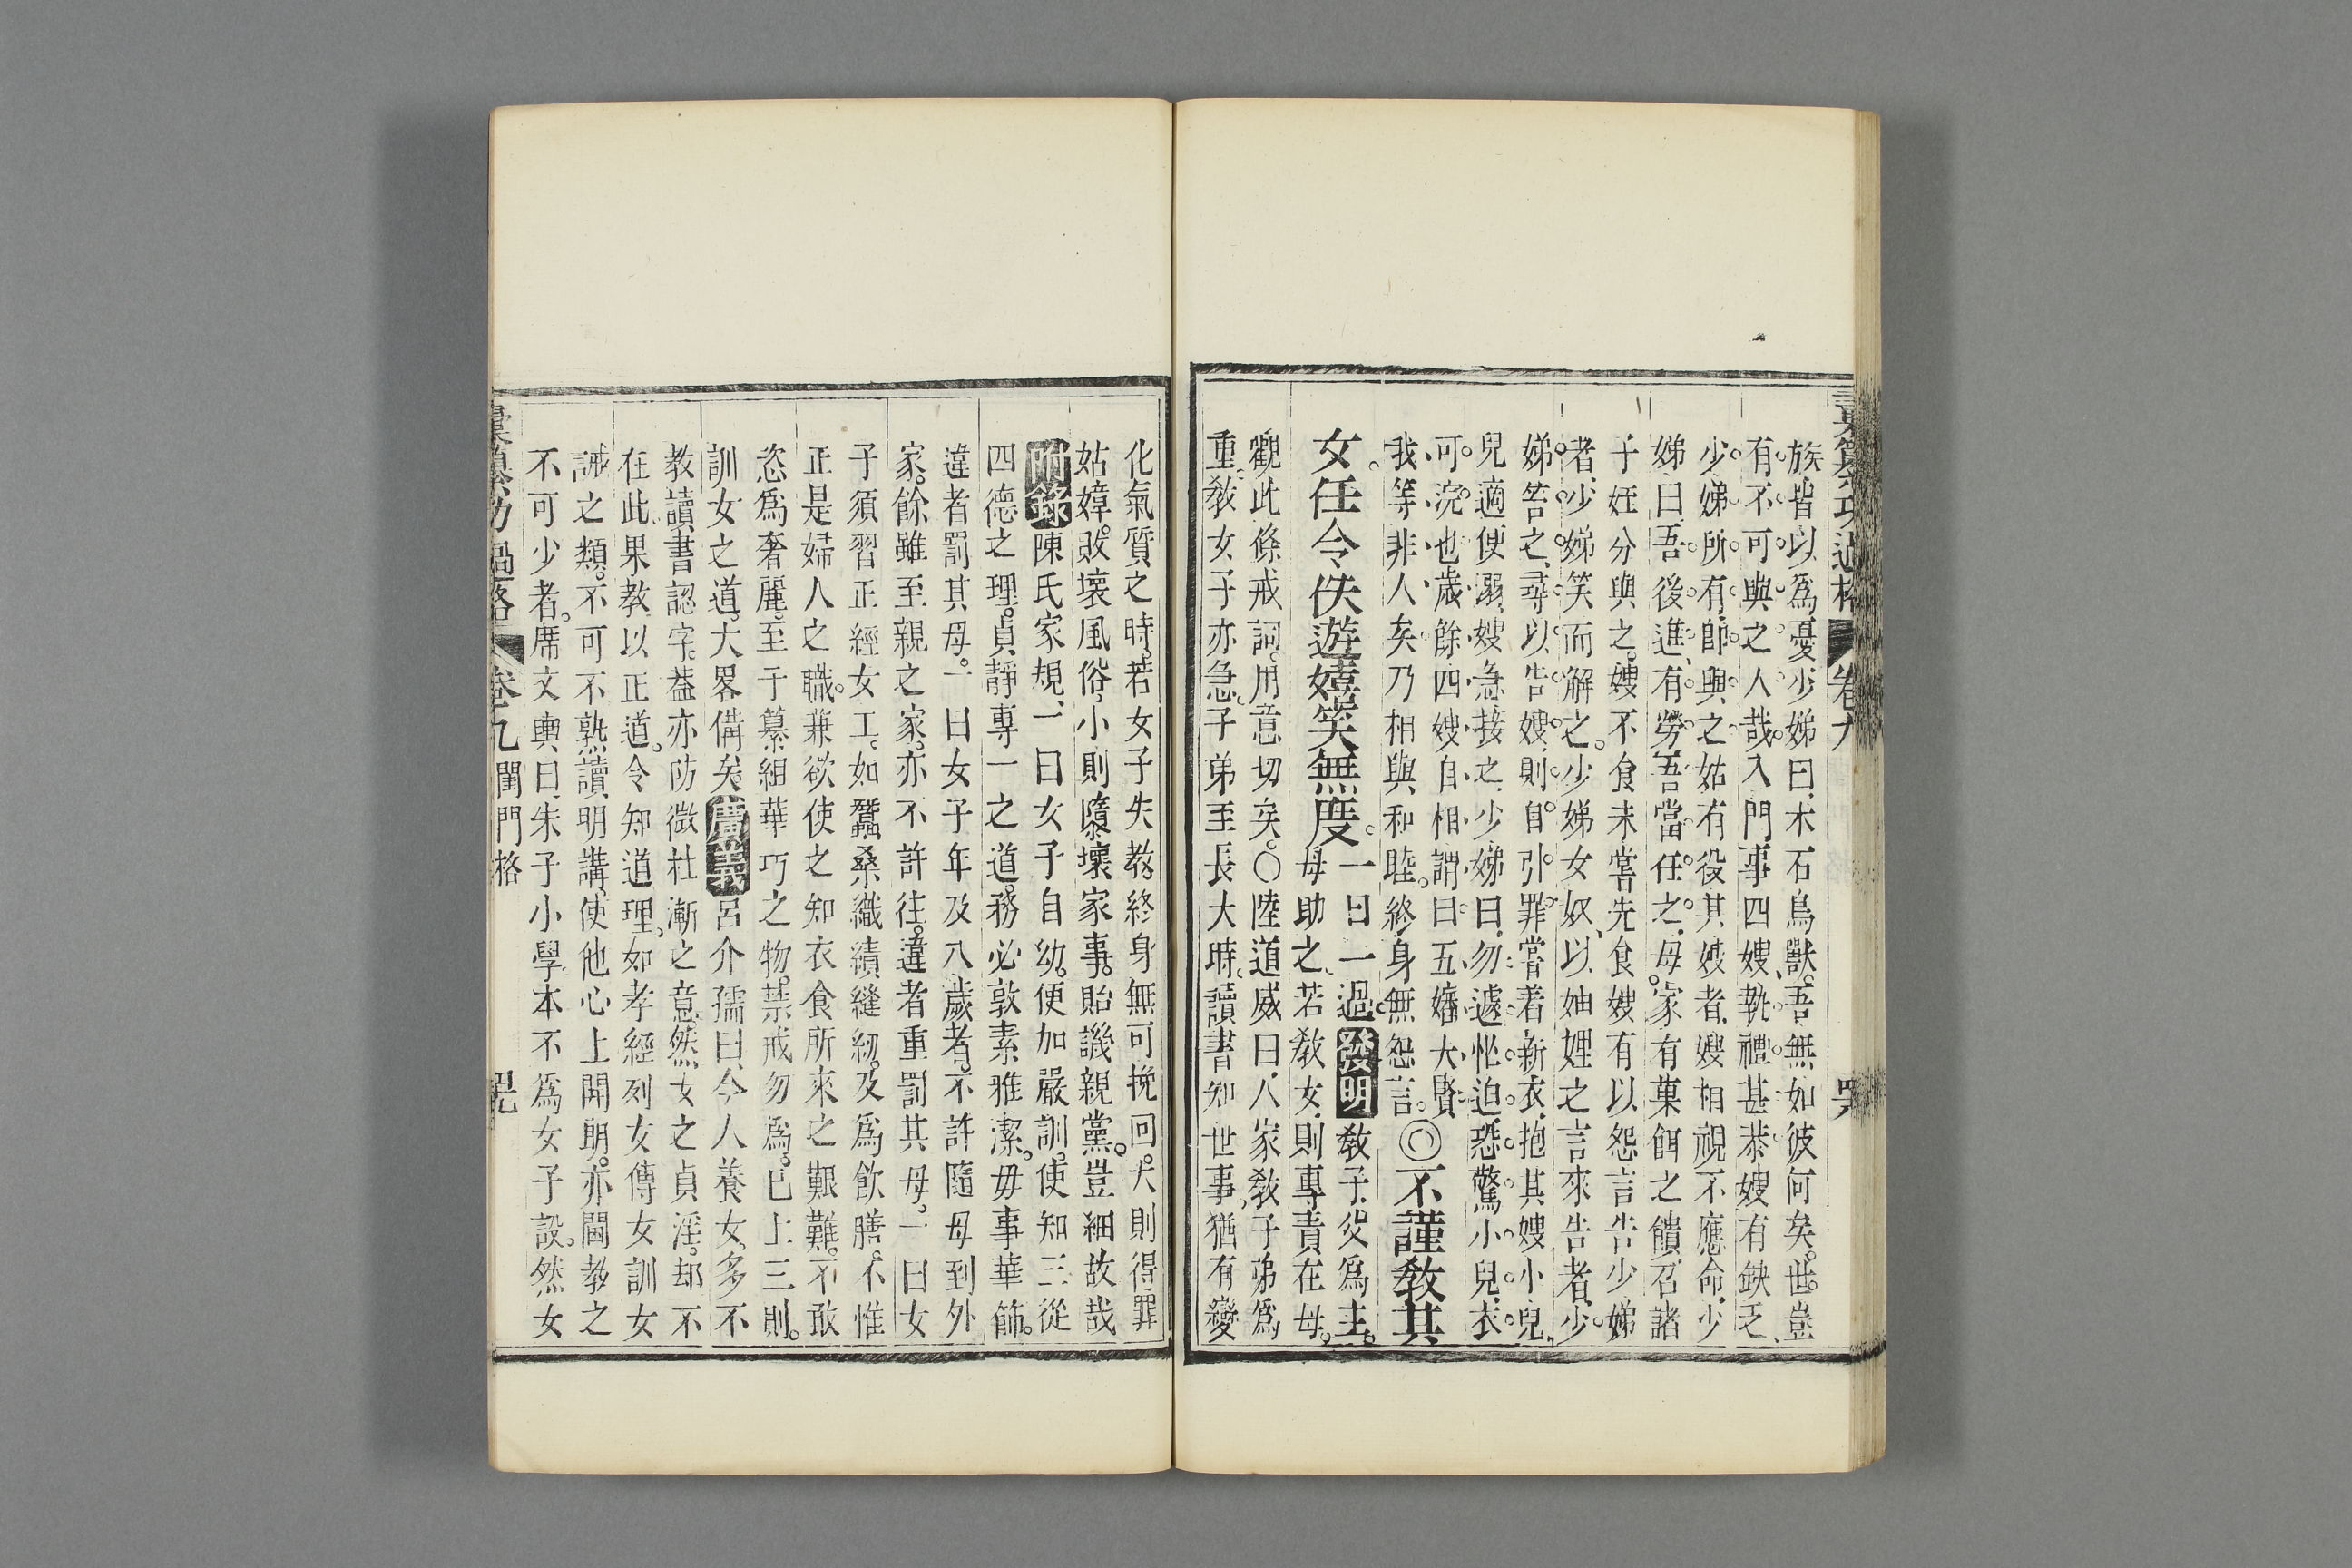 族皆以為憂少娣曰木石鳥獸吾無如彼何矣世豈
有不可與之人哉入門事四嫂執禮甚恭嫂有缺乏
少娣所有卽與之姑有役其嫂者嫂相視不應命少
娣曰吾後進有勞吾當任之母家有菓餌之饋召諸
子姪分與之嫂不食未嘗先食嫂有以怨言告少娣
者少娣笑而解之少娣女奴以妯娌之言來告者少
娣笞之尋以告嫂則自引罪嘗着新衣抱其嫂小兒
兒適便溺嫂急接之少娣曰勿遽恐驚小兒衣
可浣也歲餘四嫂自相謂曰五嬸大賢
我等非人矣乃相與和睦終身無怨言◎不謹教其
女任令佚遊嬉笑無度一日一過發明教子父為主
母助之若教女則專責在母
觀此條戒詞用意切矣〇陸道威曰人家教子弟為
重教女子亦急子弟至長大時讀書知世事猶有變
化氣質之時若女子失教終身無可挽回大則得罪
姑嫜敗壞風俗小則隳壞家事貽譏親黨豈細故哉
附錄陳氏家規一曰女子自幼便加嚴訓使知三從
四德之理貞靜專一之道務必敦素雅潔毋事華飾
違者罰其母一曰女子年及八歲者不許隨母到外
家餘雖至親之家亦不許往違者重罰其母一曰女
子須習正經女工如蠶桑織績縫紉及為飲膳不惟
正是婦人之職兼欲使之知衣食所來之艱難不敢
恣為奢麗至于纂組華巧之物禁戒勿為已上三則
訓女之道大畧備矣廣義呂介孺曰今人養女多不
教讀書認字葢亦防微杜漸之意然女之貞淫却不
在此果教以正道令知道理如孝經列女傳女訓女
誡之類不可不熟讀明講使他心上開朗亦閫教之
不可少者席文輿曰朱子小學本不為女子設然女
彙纂功過格 卷九 閨門格